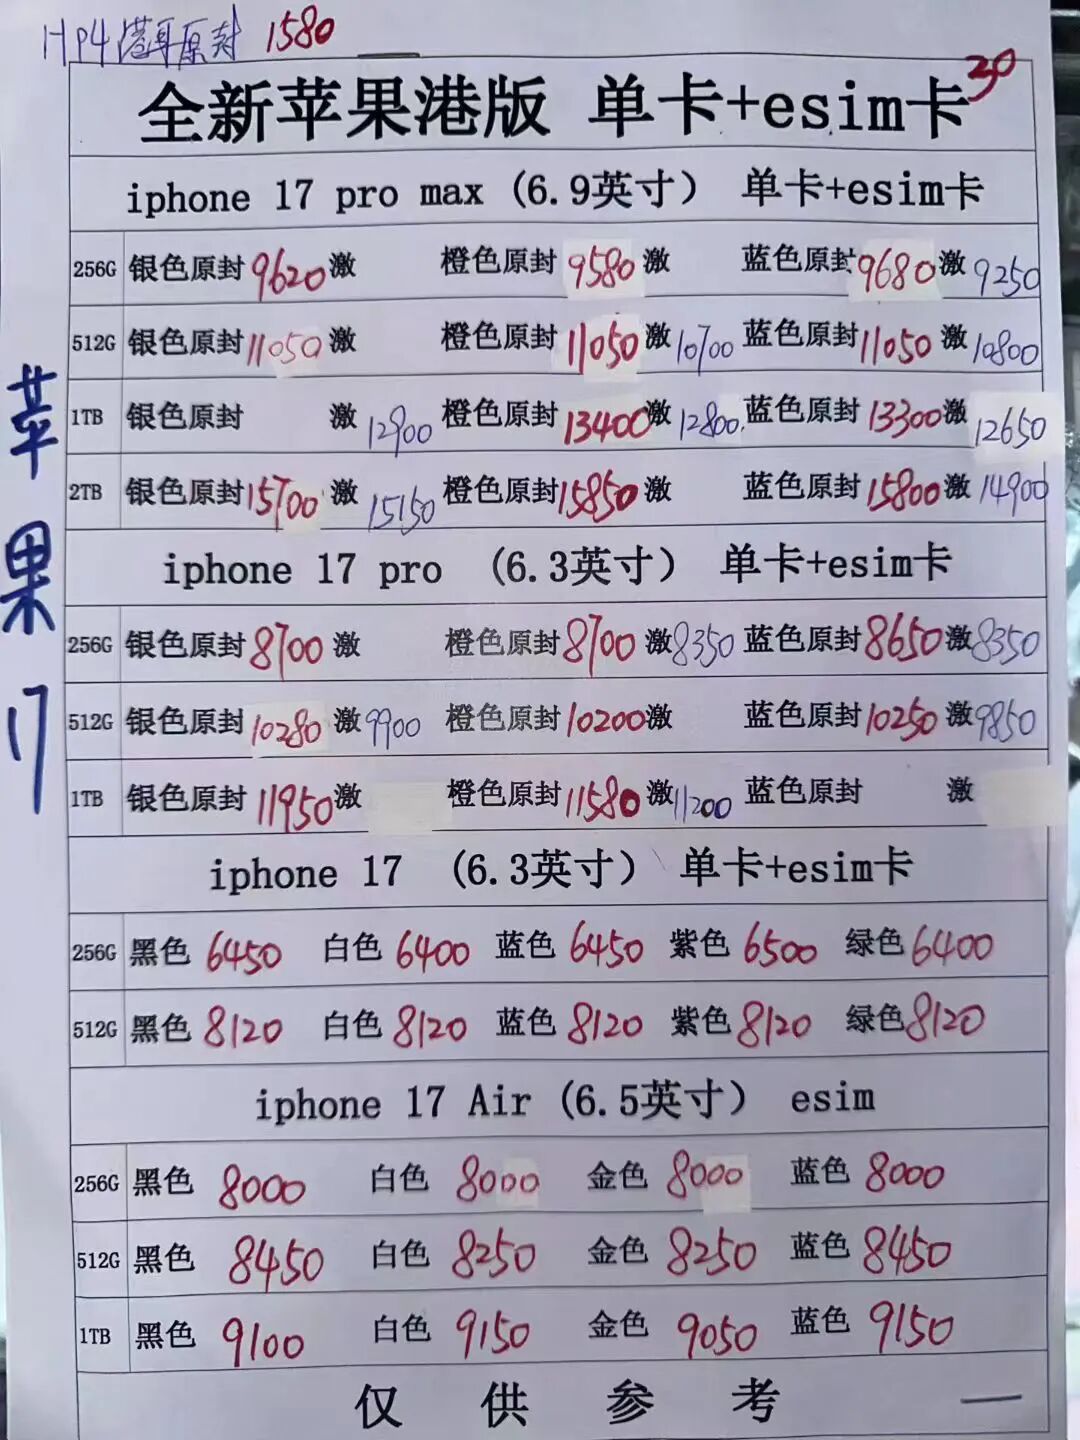 HP4港耳原封 1580
30
全新苹果港版 单卡+esim卡
iphone 17 pro max (6.9英寸) 单卡+esim卡
256G 银色原封9620激 橙色原封9580激 蓝色原封9680激9250
512G 银色原封11050激 橙色原封11050激10700 蓝色原封11050激10800
1TB 银色原封 激12900 橙色原封13400激12800 蓝色原封13300激12650
2TB 银色原封15700激15150 橙色原封15850激 蓝色原封15800激14900
iphone 17 pro (6.3英寸) 单卡+esim卡
256G 银色原封8700激 橙色原封8700激8350 蓝色原封8650激8350
512G 银色原封10280激9900 橙色原封10200激 蓝色原封10250激9850
1TB 银色原封11950激 橙色原封11580激11200 蓝色原封 激
iphone 17 (6.3英寸) 单卡+esim卡
256G 黑色 6450 白色 6400 蓝色 6450 紫色 6500 绿色6400
512G 黑色 8120 白色 8120 蓝色 8120 紫色 8120 绿色8120
iphone 17 Air (6.5英寸) esim
256G 黑色 8000 白色 8000 金色 8000 蓝色 8000
512G 黑色 8450 白色 8250 金色 8250 蓝色 8450
1TB 黑色 9100 白色 9150 金色 9050 蓝色 9150
仅供参考
苹果17